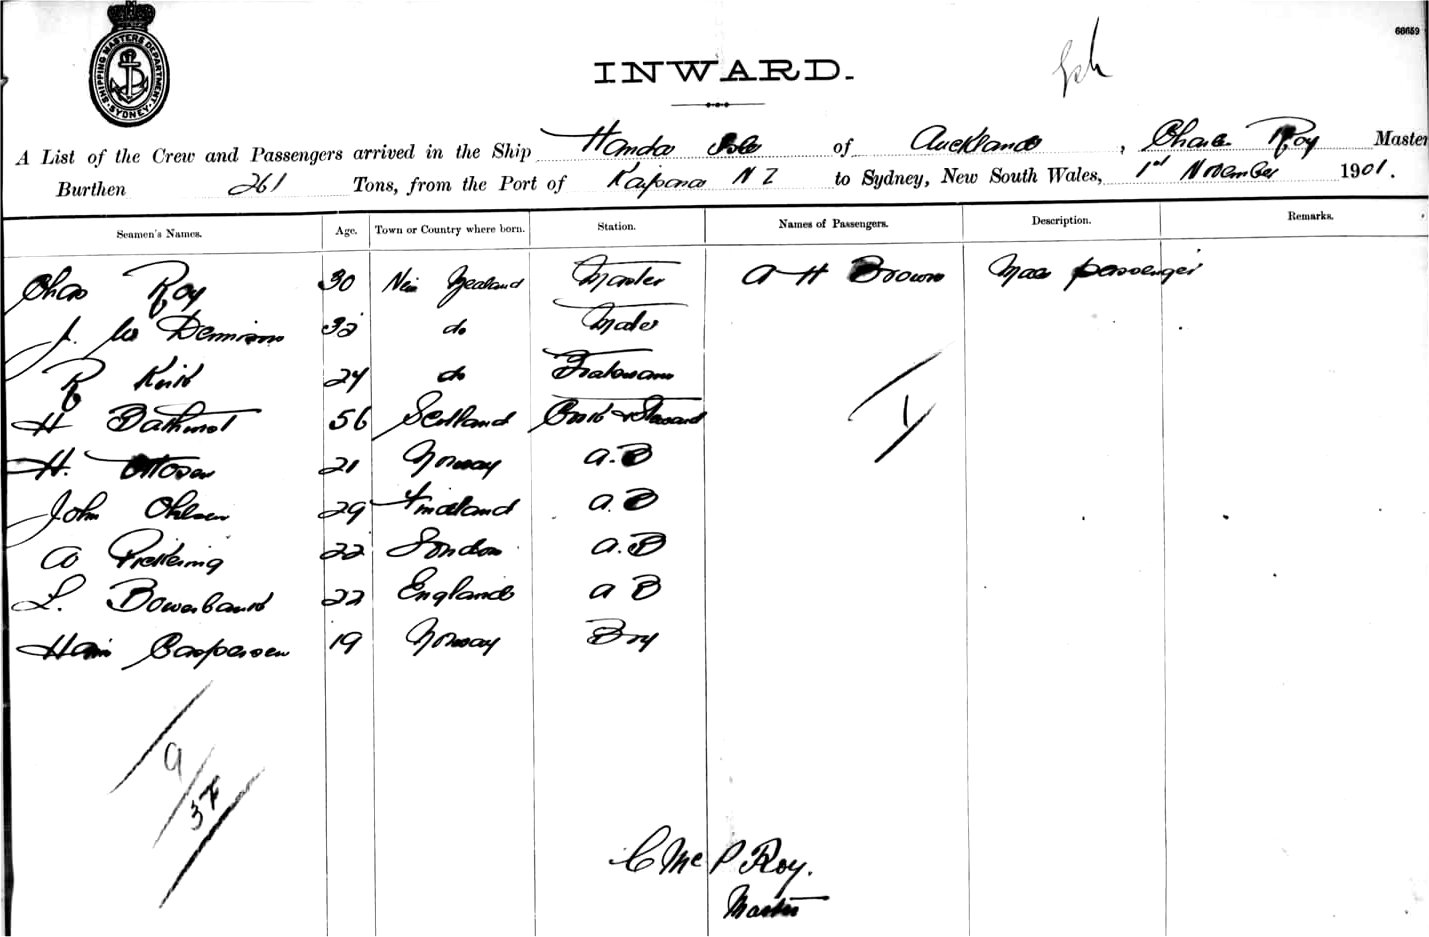 SHIPPING MASTERS DEPARTMENT
SYDNEY
66659
INWARD.
A List of the Crew and Passengers arrived in the Ship Handa Isle of Auckland, Charles Roy Master
Burthen 261 Tons, from the Port of Kaipara N Z to Sydney, New South Wales, 1st November 1901.
Seamen's Names. Age. Town or Country where born. Station. Names of Passengers. Description. Remarks.
Chas Roy 30 New Zealand Master A H Brown Male passenger
J. Dennison 32 do Mate
R Kirk 24 do
H Bathurst 56 Scotland Cook & Steward 1
H. Ottosen 21 Norway A.B
John Ohlsen 29 Finland A.B
A Pickering 22 London A.B
L. Bowerbank 22 England A B
Hans Caspersen 19 Norway Boy
9
3 F
C Mc P Roy.
Master